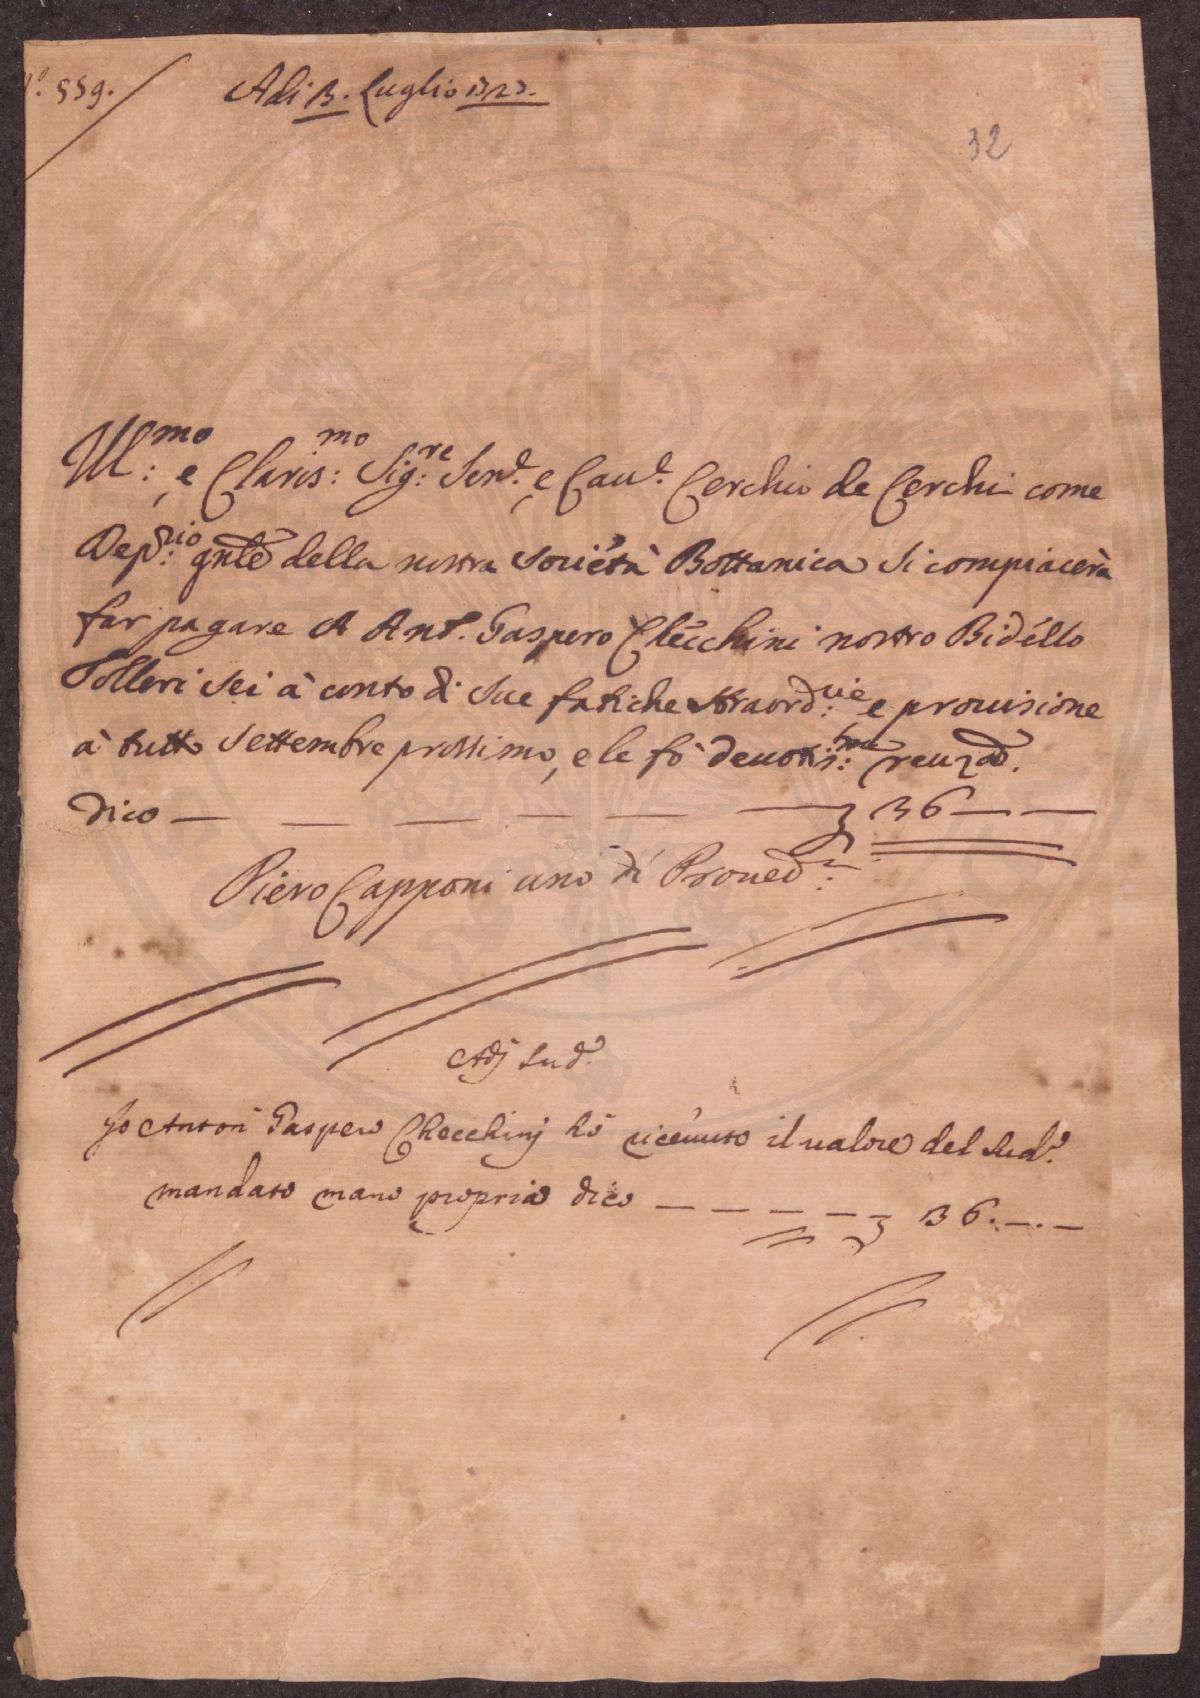 N.º 559.
Adi 13. Luglio 1723.
32
Ill:mo e Claris:mo Sig:re Sen.e e Cau.e Cerchio de Cerchi come
Dep:rio gnle della nostra Società Bottanica si compiacerà
far pagare A Ant. Gaspero Checchini nostro Bidello
Tolleri sei à conto di Sue fatiche straord:rie e prouisione
à tutto Settembre prossimo, e le fò deuotis:ma reuza.
Dico — — — — — — 36 — —
Piero Capponi uno di Proued:ri
Adj Sud.o
Io Anton Gaspero Checchinj hò riceuuto il ualore del Sud.o
mandato mano propria dico — — — — — 36. — . —